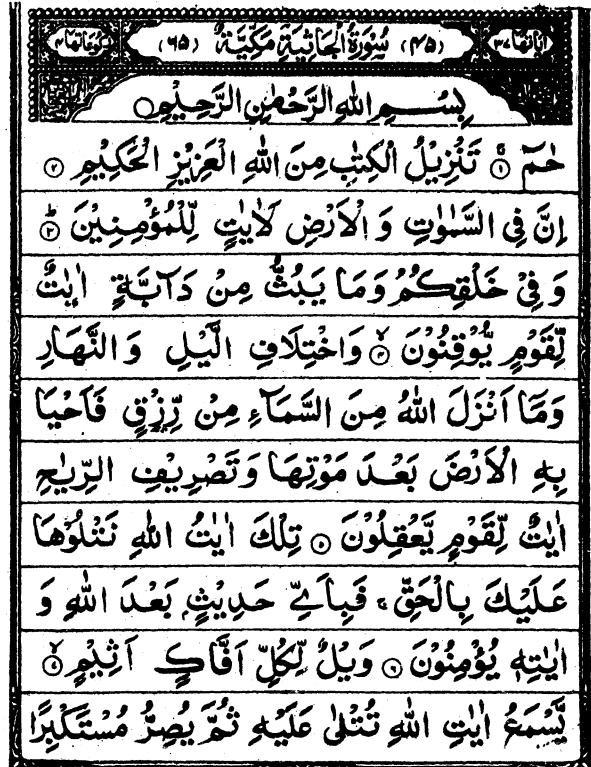 اٰیَاتُهَا ٣٧ (٤٥) سُوْرَةُ الْجَاثِيَةِ مَكِّيَّةٌ (٦٥) رُكُوْعَاتُهَا ٤
بِسْمِ اللّٰهِ الرَّحْمٰنِ الرَّحِيْمِ
حٰمٓ ۝١ تَنْزِيْلُ الْكِتٰبِ مِنَ اللّٰهِ الْعَزِيْزِ الْحَكِيْمِ ۝٢
اِنَّ فِي السَّمٰوٰتِ وَ الْاَرْضِ لَاٰيٰتٍ لِّلْمُؤْمِنِيْنَ ۝٣
وَ فِيْ خَلْقِكُمْ وَمَا يَبُثُّ مِنْ دَآبَّةٍ اٰيٰتٌ
لِّقَوْمٍ يُّوْقِنُوْنَ ۝٤ وَاخْتِلَافِ الَّيْلِ وَالنَّهَارِ
وَمَاۤ اَنْزَلَ اللّٰهُ مِنَ السَّمَآءِ مِنْ رِّزْقٍ فَاَحْيَا
بِهِ الْاَرْضَ بَعْدَ مَوْتِهَا وَتَصْرِيْفِ الرِّيٰحِ
اٰيٰتٌ لِّقَوْمٍ يَّعْقِلُوْنَ ۝٥ تِلْكَ اٰيٰتُ اللّٰهِ نَتْلُوْهَا
عَلَيْكَ بِالْحَقِّ ۚ فَبِاَيِّ حَدِيْثٍۭ بَعْدَ اللّٰهِ وَ
اٰيٰتِهٖ يُؤْمِنُوْنَ ۝٦ وَيْلٌ لِّكُلِّ اَفَّاكٍ اَثِيْمٍ ۝٧
يَّسْمَعُ اٰيٰتِ اللّٰهِ تُتْلٰى عَلَيْهِ ثُمَّ يُصِرُّ مُسْتَكْبِرًا